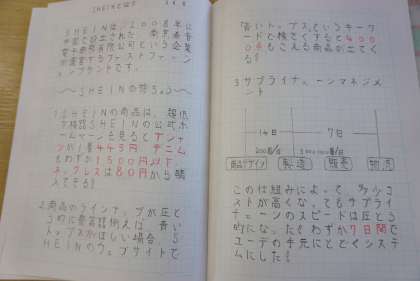 SHEINとは?
SHEINは、2008年に
中国で設立された 南京希音
電子商務有限公司という企業
が運営するファストファーシ
ョンブランドです。
〜SHEINの特ちょう〜
1 SHEINの商品は、超低
SHEINの公式ホ
ームページを見るとTシャ
ツが1着443円 デニム
もわずか1500円以下
ネックレスは80円から購
入できる!
2 商品のラインナップが圧と
う的に豊富
トップスがほしい場合、S
HEINのウェブサイトで
「青いトップス」というキーワ
ードで検さくすると400
0点もこえる商品が出てく
る!
3 サプライチェーンマネジメ
ント
14日
7日
商品デザイン
製造
販売
物流
この仕組みによって、多少コ
ストが高くなってもサプライ
チェーンのスピードは圧とう
的になった。わずか7日間で
ユーザの手元にとどくシステ
ムにした!